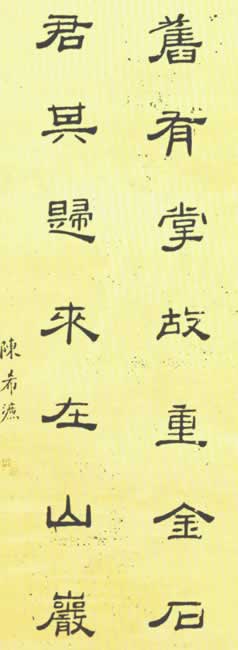 舊有掌故重金石
君其歸來在山巖
陳希濂